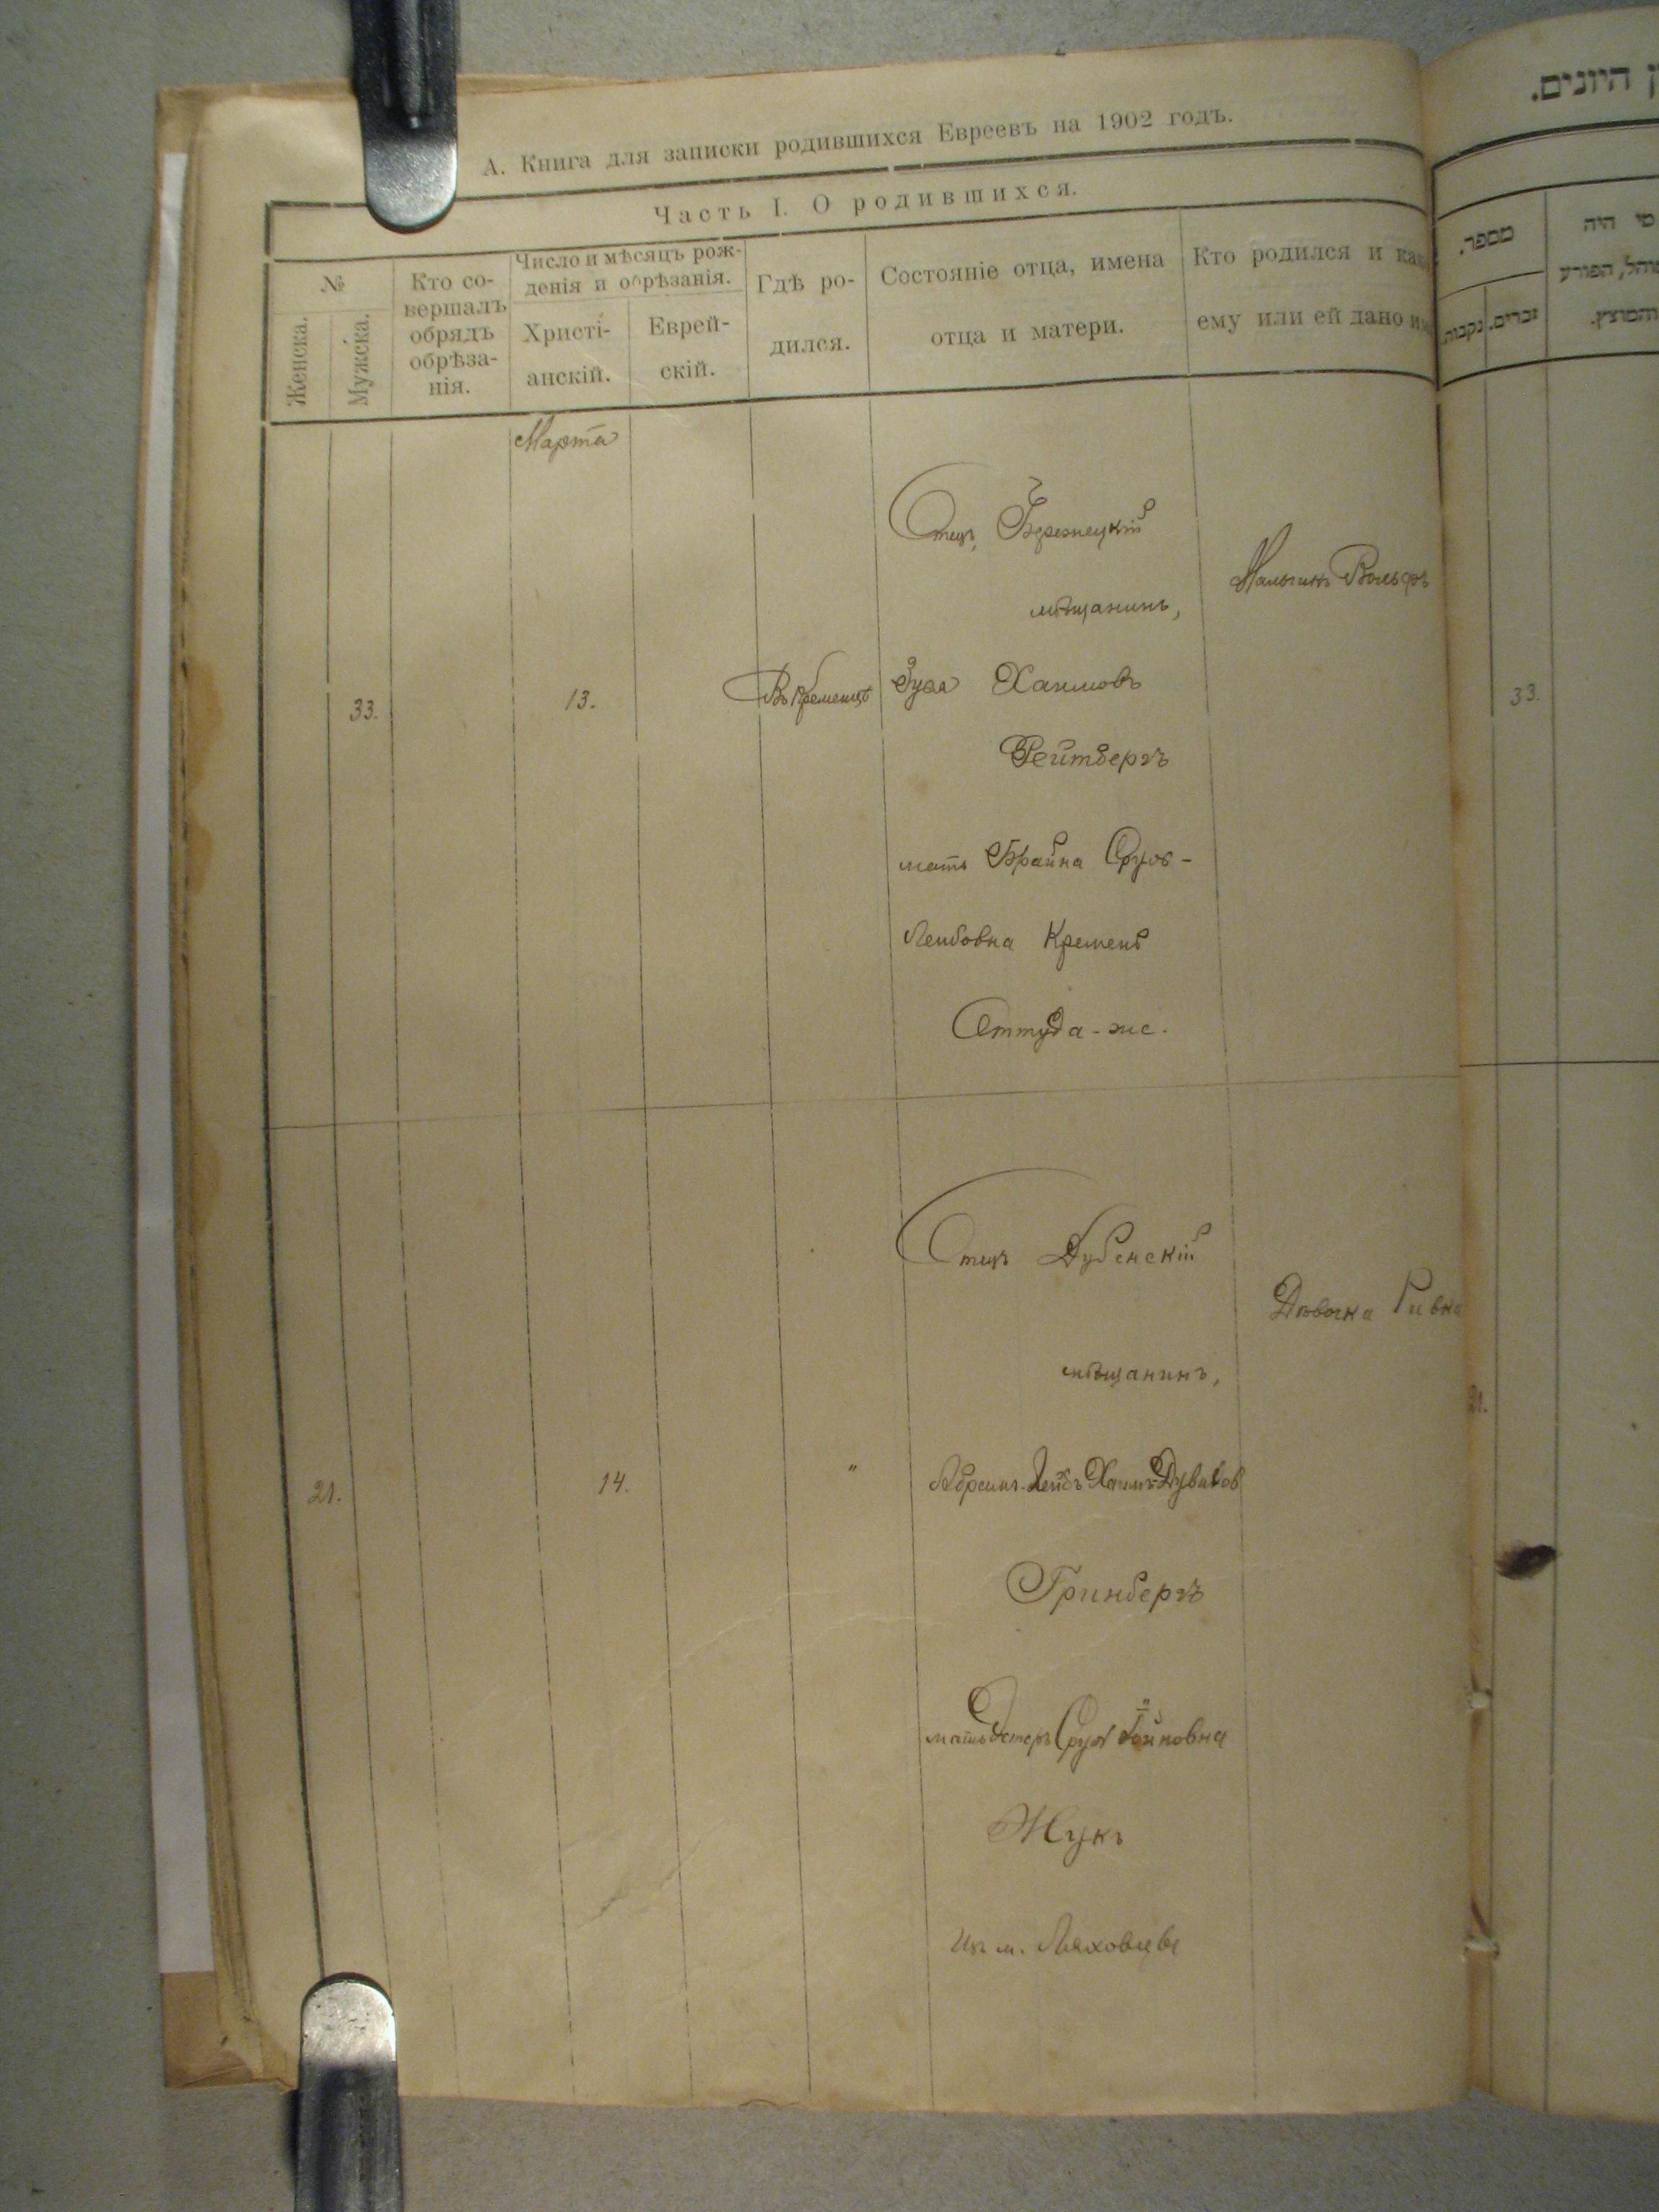 А. Книга для записки родившихся Евреевъ на 1902 годъ.
Часть I. О родившихся.
№
Женска.
Мужска.
Кто со-
вершалъ
обрядъ
обрѣза-
нія.
Число и мѣсяцъ рож-
денія и обрѣзанія.
Христі-
анскій.
Еврей-
скій.
Гдѣ ро-
дился.
Состояніе отца, имена
отца и матери.
Кто родился и как
ему или ей дано им
Марта
33.
13.
Въ Кременцѣ
Отецъ, Бережецкій
мѣщанинъ,
Зуся Хаимовъ
Рейтбергъ
мать Брайна Сруль-
Лейбовна Кремень
Оттуда-же.
Мальчикъ Вольфъ
21.
14.
"
Отецъ Дубенскій
мѣщанинъ,
Абрамъ-Лейбъ Хаимъ-Дувидов
Гринбергъ
мать Эстеръ Сруль
Жукъ
Изъ м. Ляховцы
Дѣвочка Ривка
היונים.
מספר.
זכרים.
נקבות.
מי היה
מוהל, הפורע
והמוצץ.
33.
21.